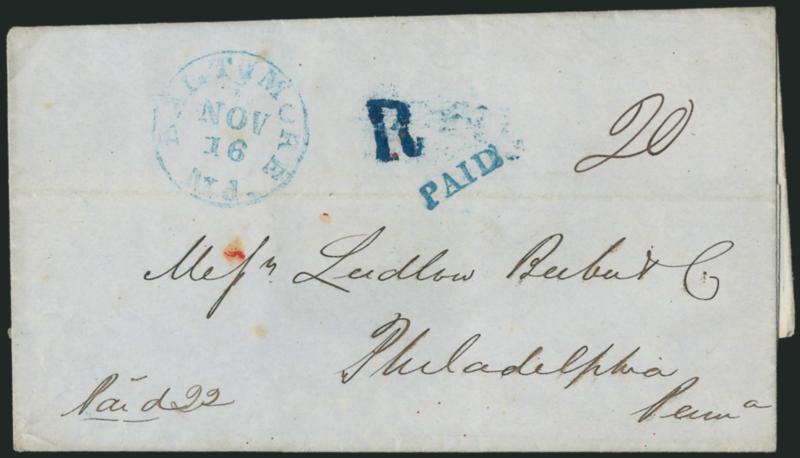 BALTIMORE
NOV
16
R
PAID
20
Messrs Ludlow Beebe & Co
Philadelphia
Penna
Paid 22